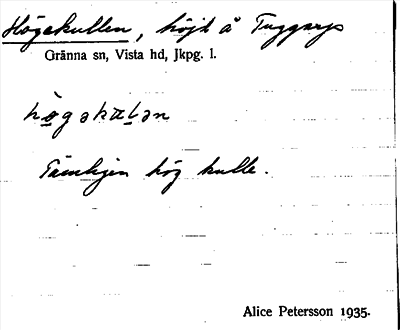 Högekullen, höjd å Tuggarp
Gränna sn, Vista hd, Jkpg. l.
Tämligen hög kulle.
Alice Petersson 1935.